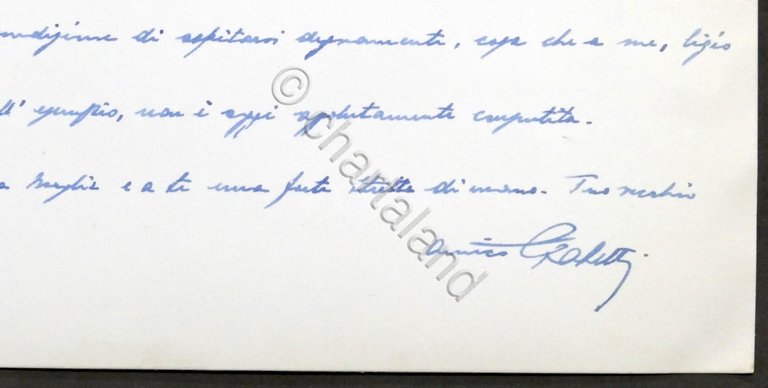 di ospitarvi degnamente, cosa che a me, ligio
all'esempio, non è oggi assolutamente consentita.
Moglie e a te una forte stretta di mano. Tuo vecchio
amico
© chartaland